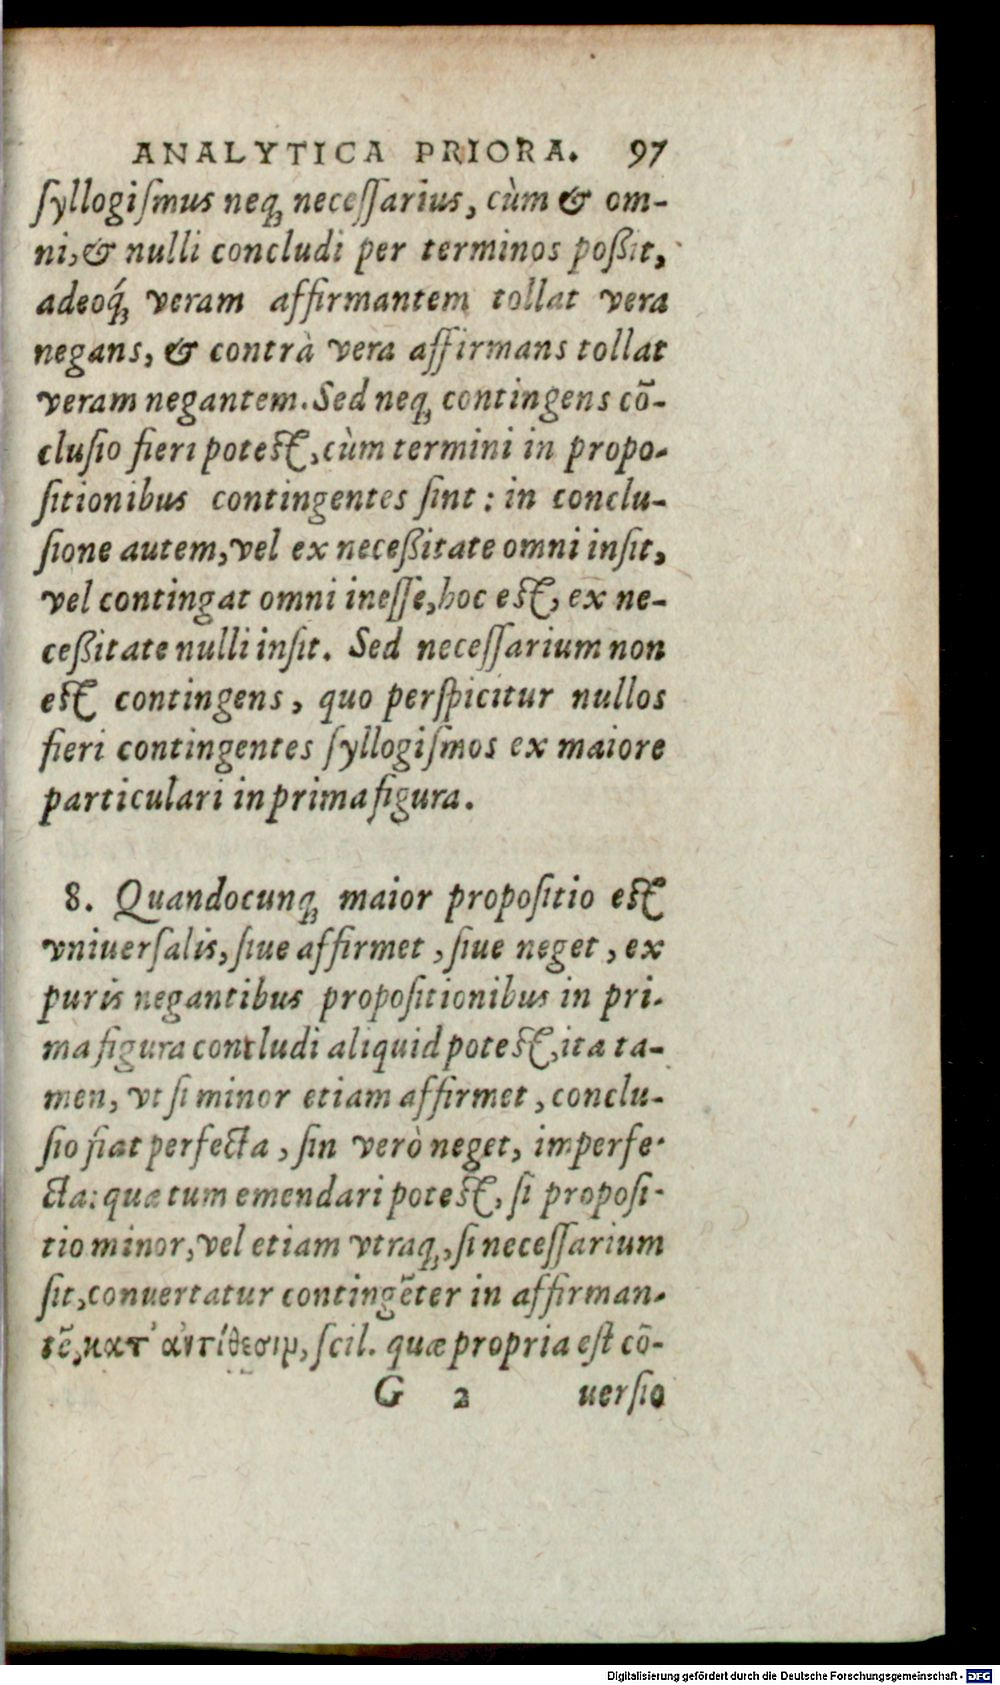 ANALYTICA PRIORA. 97
ſyllogiſmus neq́; neceſſarius, cùm & om-
ni, & nulli concludi per terminos poßit,
adeoq́; veram affirmantem tollat vera
negans, & contrà vera affirmans tollat
veram negantem. Sed neq; contingens cō-
cluſio fieri poteſt, cùm termini in propo-
ſitionibus contingentes ſint: in conclu-
ſione autem, vel ex neceßitate omni inſit,
vel contingat omni ineſſe, hoc eſt, ex ne-
ceßitate nulli inſit. Sed neceſſarium non
eſt contingens, quo perſpicitur nullos
fieri contingentes ſyllogiſmos ex maiore
particulari in prima figura.
8. Quandocunq; maior propoſitio eſt
vniuerſalis, ſiue affirmet, ſiue neget, ex
puris negantibus propoſitionibus in pri-
ma figura concludi aliquid poteſt, ita ta-
men, vt ſi minor etiam affirmet, conclu-
ſio fiat perfecta, ſin verò neget, imperfe-
cta: quæ tum emendari poteſt, ſi propoſi-
tio minor, vel etiam vtraq;, ſi neceſſarium
ſit, conuertatur contingēter in affirman-
tē, κατ' ἀντίθεσιν, ſcil. quæ propria eſt cō-
G 2 uerſio
Digitalisierung gefördert durch die Deutsche Forschungsgemeinschaft - DFG